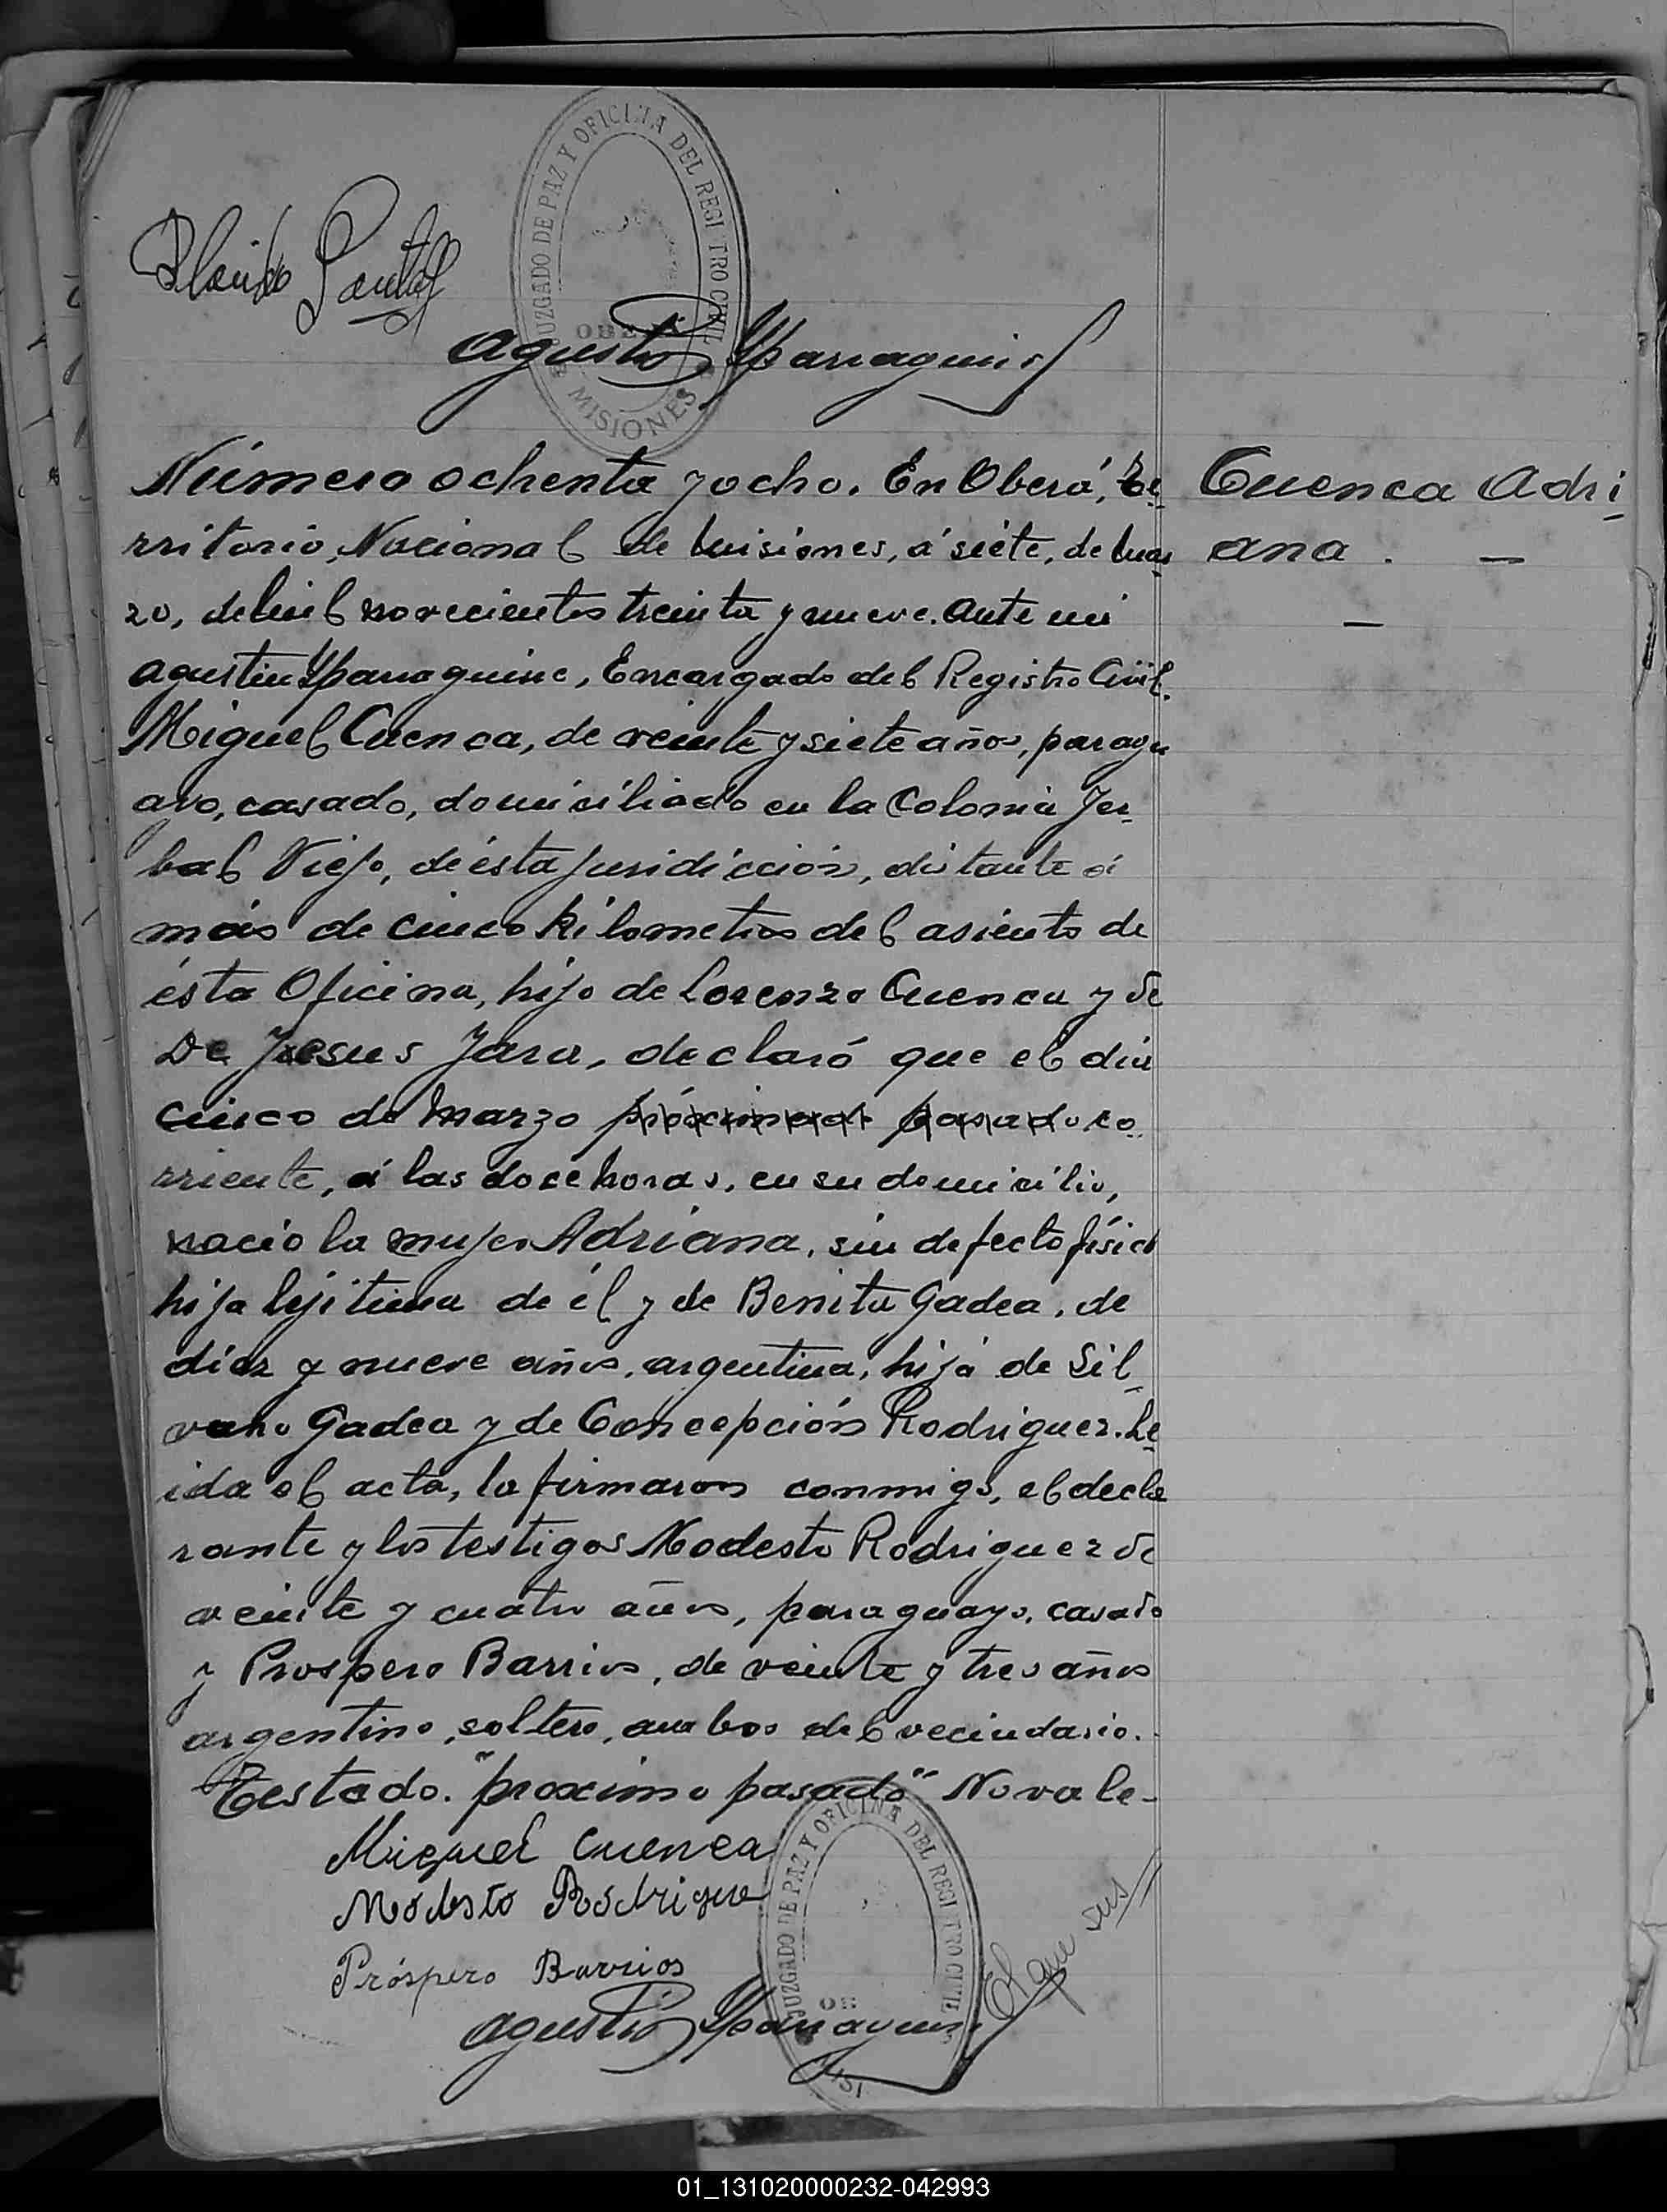 JUZGADO DE PAZ Y OFICINA DEL REGISTRO CIVIL
MISIONES
Agustín Yparraguirre
Número ochenta y ocho. En Oberá, Te-
rritorio, Nacional de Misiones, á siete, de Mar
zo, de mil novecientos treinta y nueve. Ante mi
Agustin Yparraguirre, Encargado del Registro Civil.
Miguel Cuenca, de veinte y siete años, paragu
ayo, casado, domiciliado en la Colonia Yer-
bal Viejo, de ésta jurisdicción, distante á
más de cinco kilometros del asiento de
ésta Oficina, hijo de Lorenzo Cuenca y de
De Jesus Jara, declaró que el día
cinco de Marzo próximo pasado co-
rriente, á las doce horas, en su domicilio,
nació la mujer Adriana, sin defecto físico
hija lejitima de él y de Benita Gadea, de
diez y nueve años, argentina, hija de Sil-
vano Gadea y de Concepción Rodriguez. Le-
ida el acta, la firmaron conmigo, el decla
rante y los testigos Modesto Rodriguez de
veinte y cuatro años, paraguayo, casado
y Prospero Barrios, de veinte y tres años
argentino, soltero, ambos del vecindario.
Testado. "proximo pasado" No vale-
Cuenca Adri-
ana. —
—
Miguel Cuenca
Modesto Rodrigue
Próspero Barrios
JUZGADO DE PAZ Y OFICINA DEL REGISTRO CIVIL
Agustín Yparraguirre
01_131020000232-042993